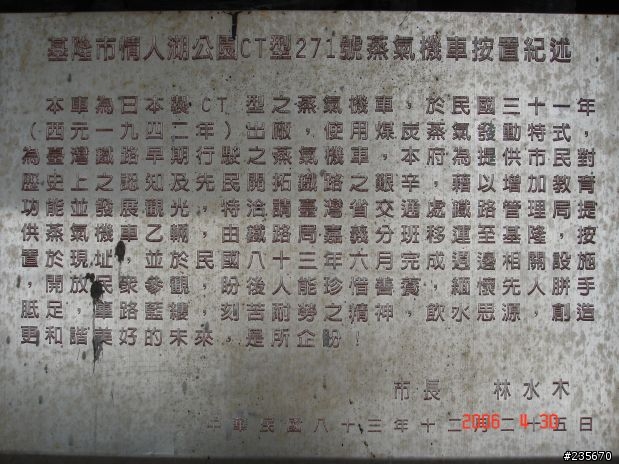 基隆市情人湖公園CT型271號蒸氣機車按置紀述
本車為日本製CT型之蒸氣機車,於民國三十一年,
(西元一九四二年)出廠,使用煤炭蒸氣發動特式,
為臺灣鐵路早期行駛之蒸氣機車。本府為提供市民對
歷史上之認知及先民開拓鐵路之艱辛,藉以增加教育
功能並發展觀光,特洽請臺灣省交通處鐵管理局,提
供蒸氣機車乙輛,由鐵路局嘉義分班移運至基隆,按
置於現址,並於國八十三年六月完成邊邊相關設施
,開放民眾參觀,盼後人珍惜善養,緬懷先人,胼手
胝足,篳路藍縷,刻苦耐勞精神,飲水思源,創造
更和諧美好的未來,是所企盼!
市長 林水木
中華民國八十三年十二月二十五日
2006 4 30
#235670